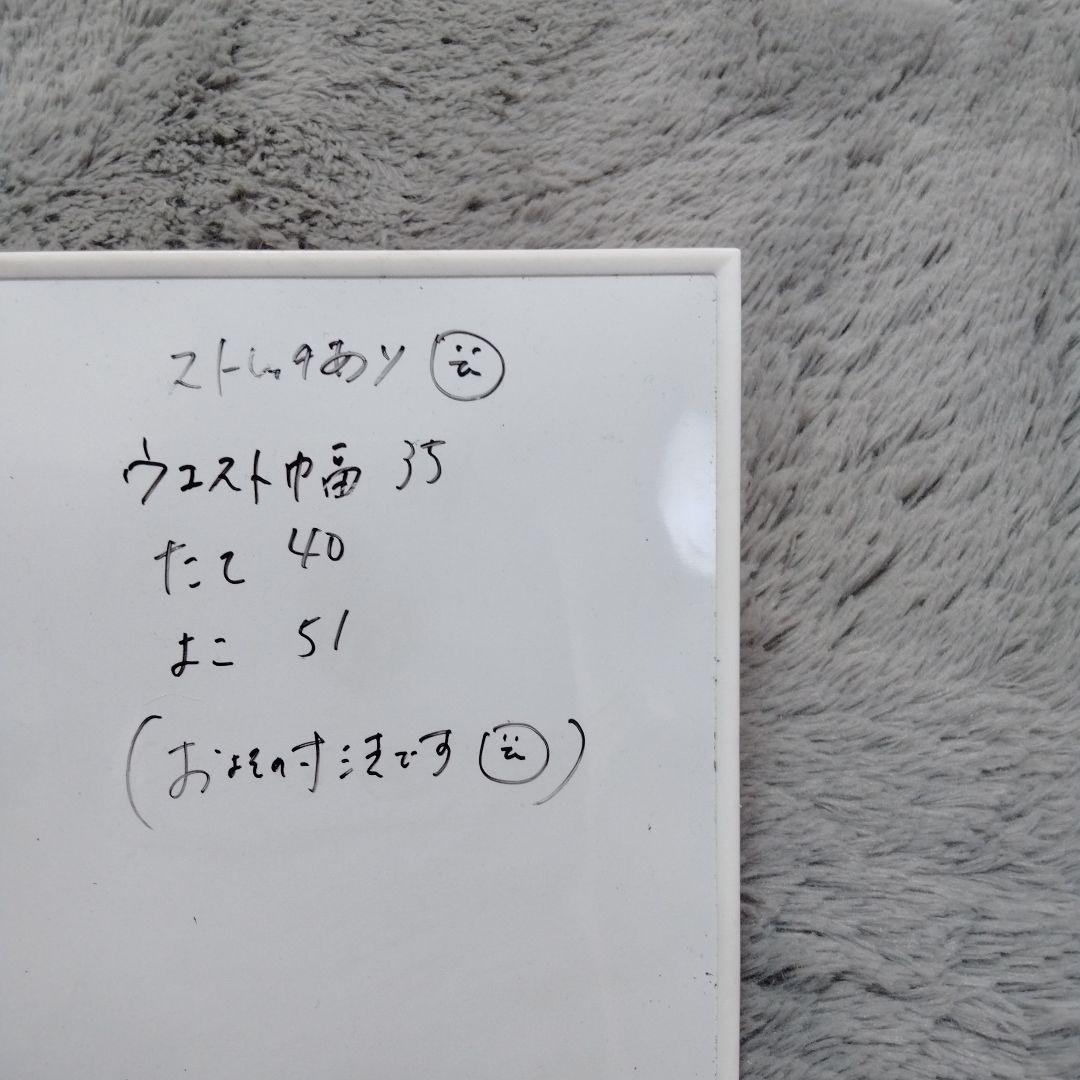 ストレッチあり
ウエスト巾幅 35
たて 40
よこ 51
(およその寸法です)